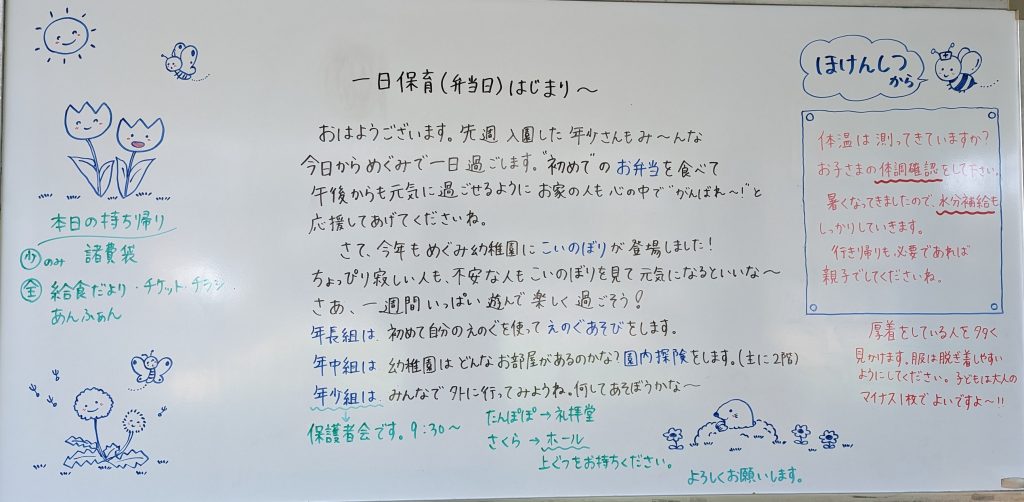 一日保育(弁当日)はじまり〜
おはようございます。先週 入園した年少さんもみ〜んな
今日からめぐみで一日過ごします。"初めて"のお弁当を食べて
午後からも元気に過ごせるようにお家の人も心の中で"がんばれ〜!"と
応援してあげてくださいね。
さて、今年もめぐみ幼稚園にこいのぼりが登場しました!
ちょっぴり寂しい人も、不安な人もこいのぼりを見て元気になるといいな〜
さあ、一週間いっぱい遊んで楽しく過ごそう!
年長組は 初めて自分のえのぐを使ってえのぐあそびをします。
年中組は 幼稚園はどんなお部屋があるのかな?園内探険をします。(主に2階)
年少組は みんなで外に行ってみようね。何してあそぼうかな〜
保護者会です。9:30〜
たんぽぽ→礼拝堂
さくら→ホール
上ぐつをお持ちください。
よろしくお願いします。
本日の持ち帰り
少のみ 諸費袋
全 給食だより・チケット・チラシ
あんふぁん
ほけんしつ
から
体温は測ってきていますか?
お子さまの体調確認をして下さい。
暑くなってきましたので、水分補給も
しっかりしていきます。
行き帰りも必要であれば
親子でしてくださいね。
厚着をしている人を多く
見かけます。服は脱ぎ着しやすい
ようにしてください。子どもは大人の
マイナス1枚でよいですよ〜!!